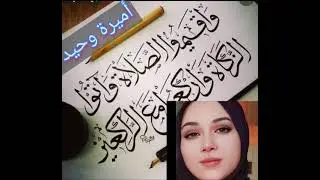 أميرة وحيد
وأقيموا الصلاة وآتوا
الزكاة واركعوا مع الراكعين